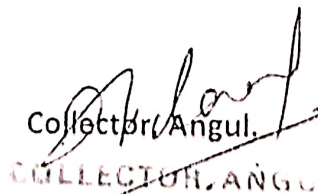 Collector, Angul.
COLLECTOR, ANGU